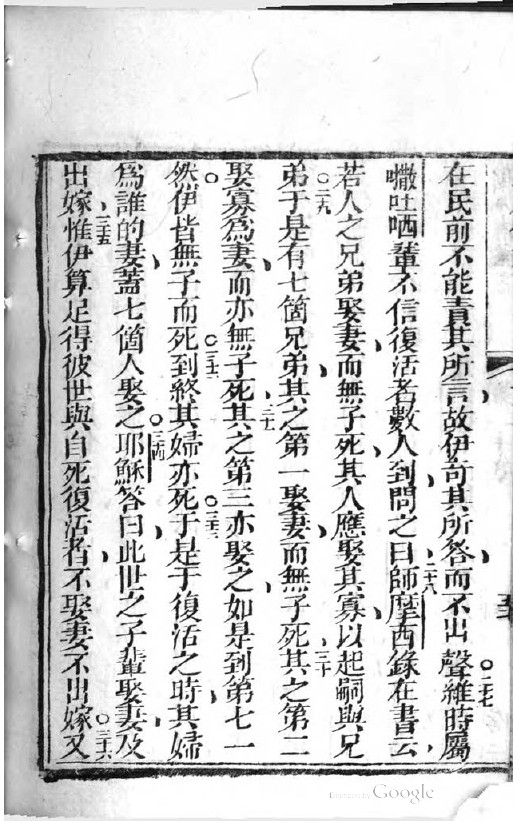 在民前不能責其所言故伊奇其所答而不出聲○二七維時屬
𠹌吐哂輩不信復活者數人到問之曰二八師摩西錄在書云
若人之兄弟娶妻而無子死其人應娶其寡以起嗣與兄
弟○二九于是有七箇兄弟其之第一娶妻而無子死三十其之第二
娶寡為妻而亦無子死三一其之第三亦娶之如是到第七一
然伊皆無子而死○三二到終其婦亦死○三三于是于復活之時其婦
為誰的妻蓋七箇人娶之○三四耶穌答曰此世之子輩娶妻及
出嫁三五惟伊算足得彼世與自死復活者不娶妻不出嫁○三六又
Digitized by Google